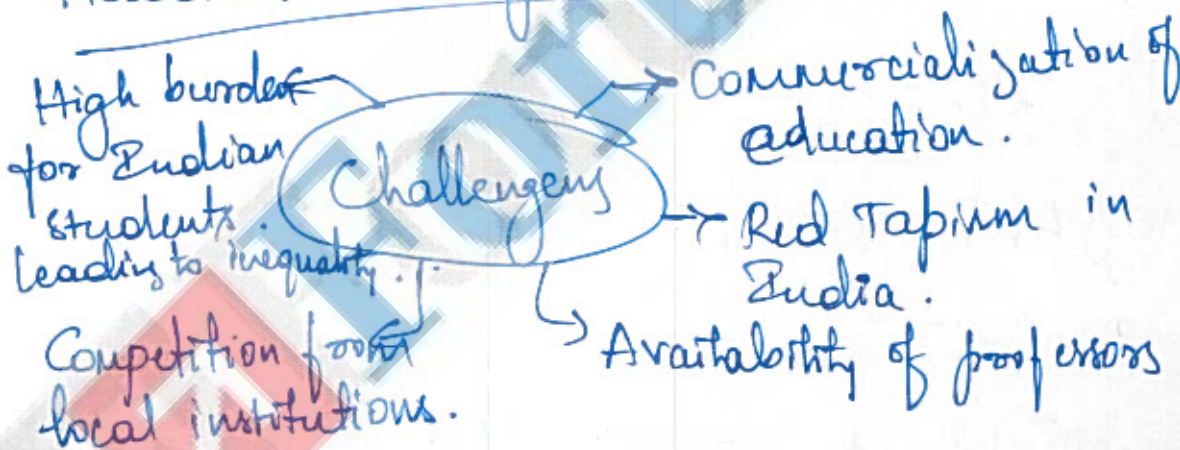 High burden
for Indian
students.
leading to inequality.
Challenges
Commercialization of
education.
Red Tapism in
India.
Availability of professors
Competition from
local institutions.